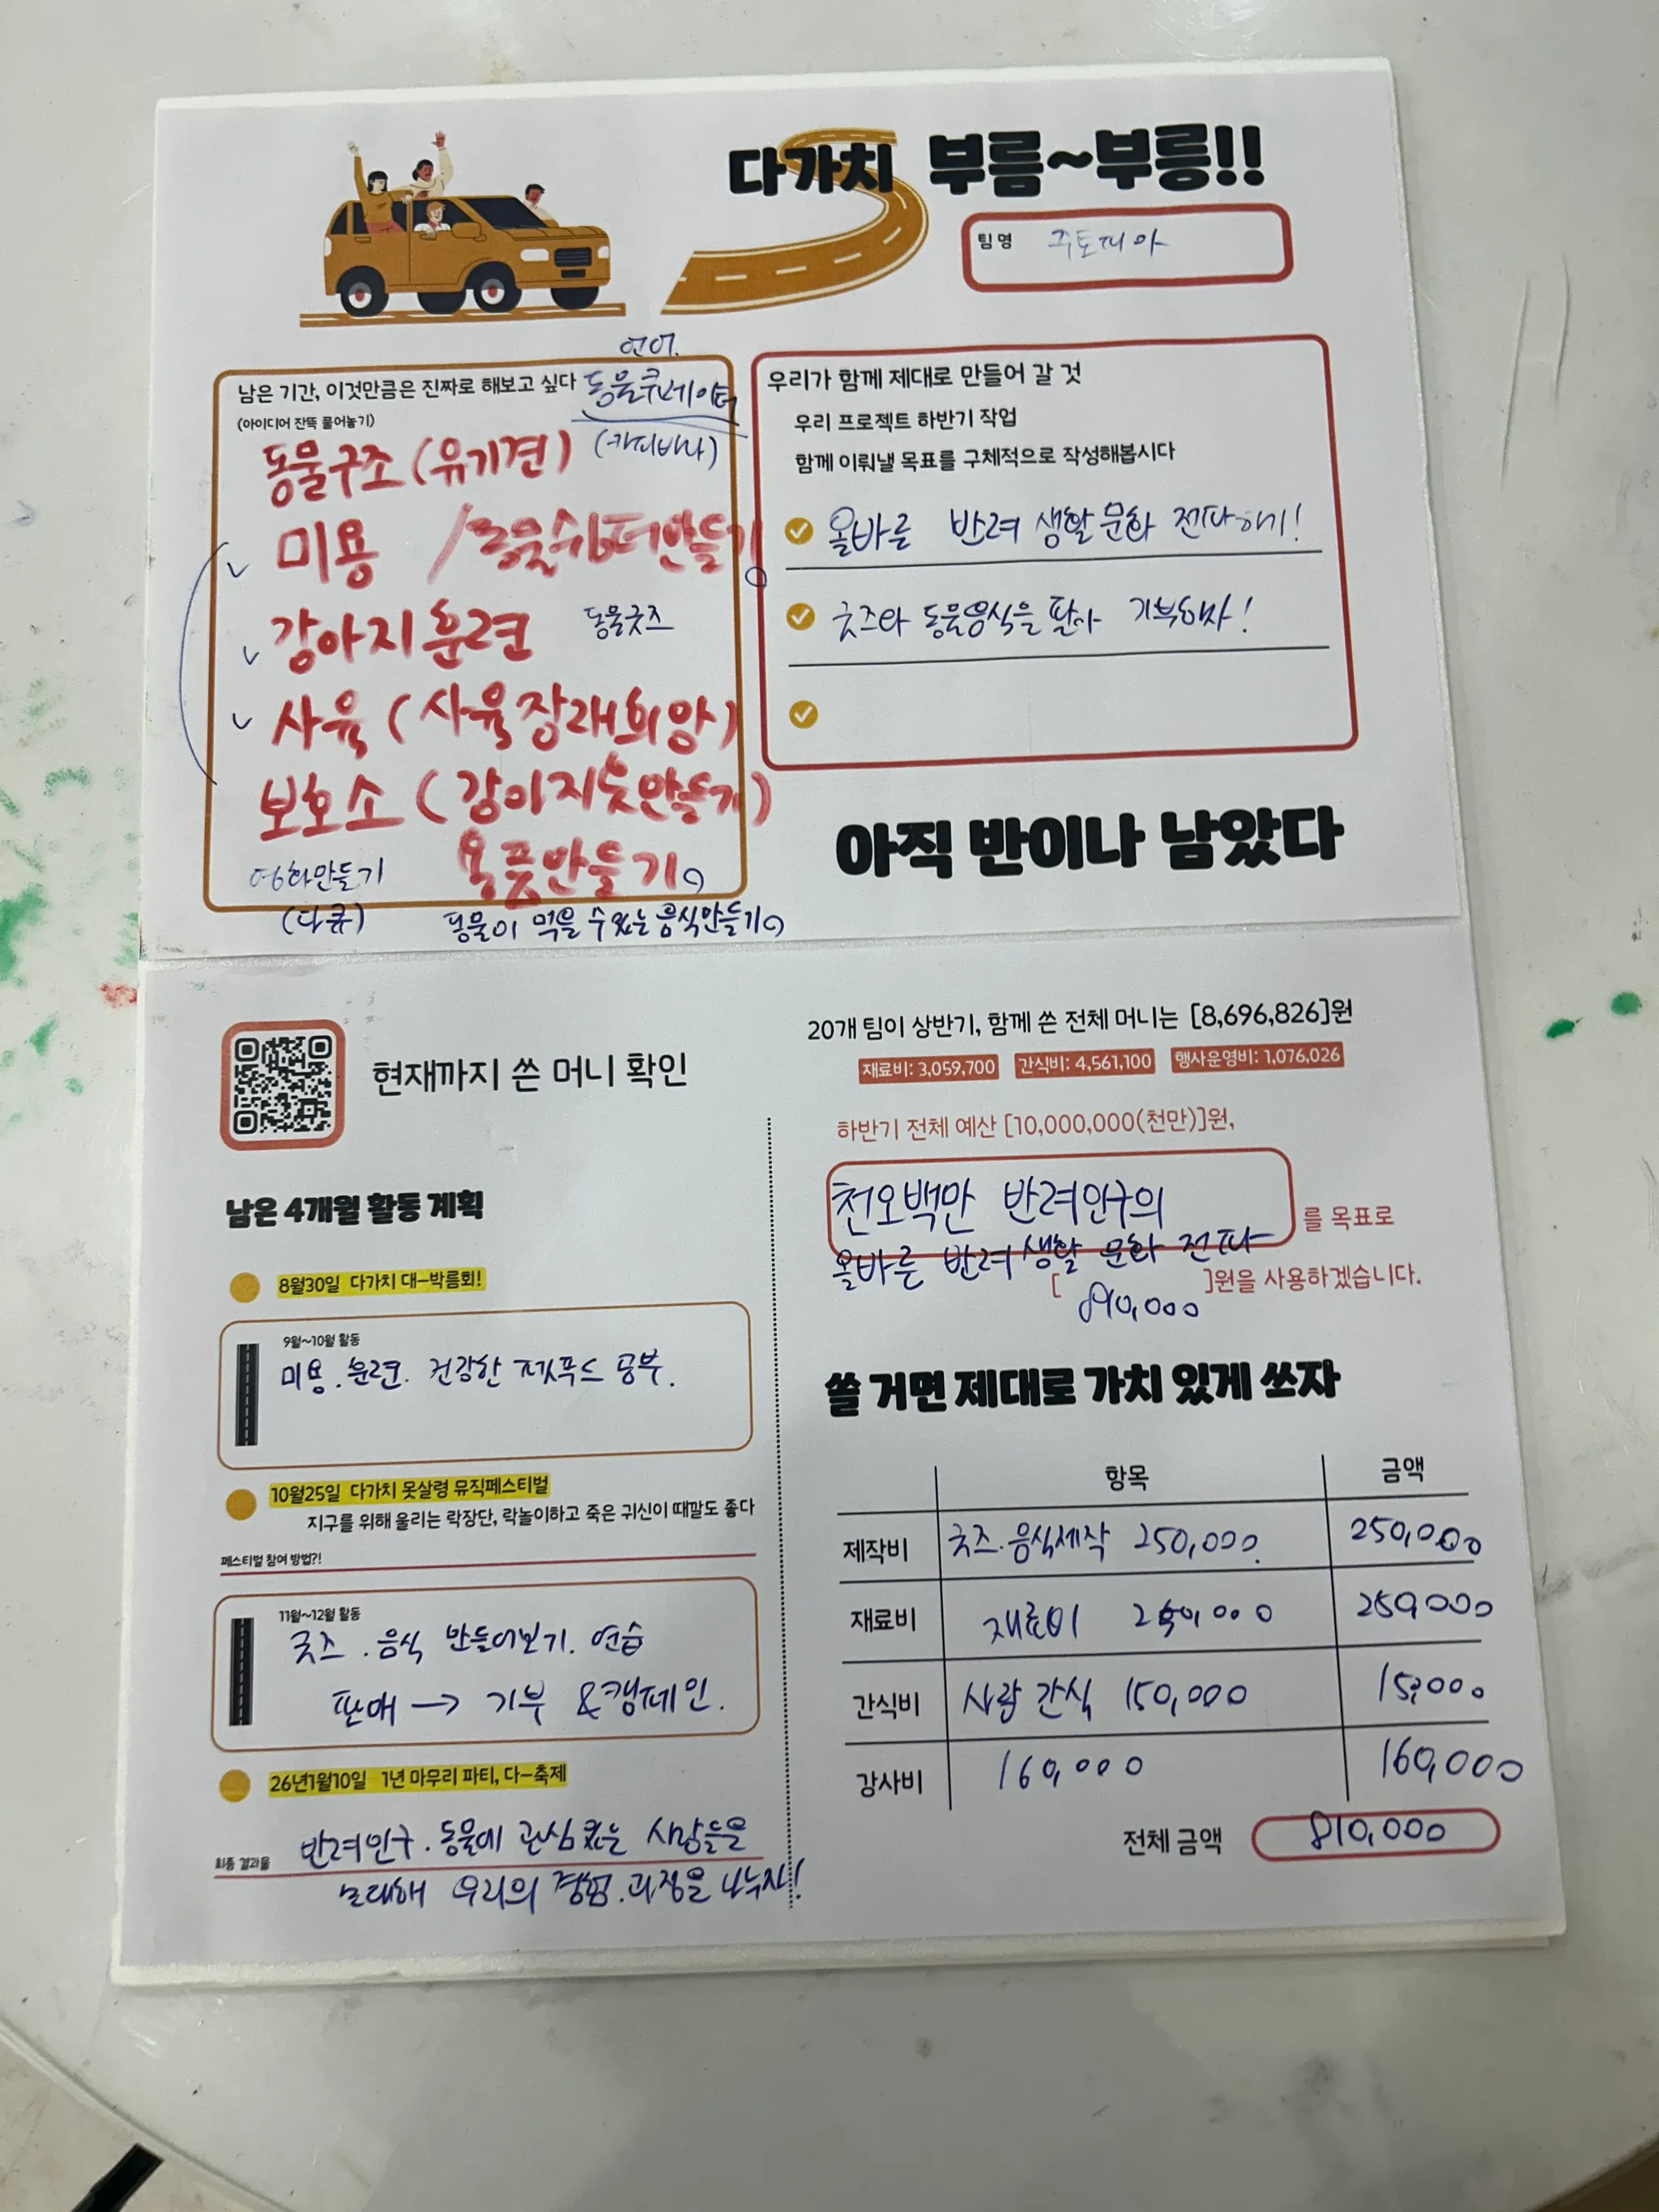 다가치 부름~부릉!!
팀명 주토피아
언어.
남은 기간, 이것만큼은 진짜로 해보고 싶다 동물큐레이터
(아이디어 잔뜩 풀어놓기)
(카피바라)
동물구조 (유기견)
미용 / 동물쉼터만들기
강아지훈련 동물굿즈
사육 (사육장래희망)
보호소 (강아지옷만들기)
용품만들기
영화만들기
(다큐)
동물이 먹을 수 있는 음식만들기
우리가 함께 제대로 만들어 갈 것
우리 프로젝트 하반기 작업
함께 이뤄낼 목표를 구체적으로 작성해봅시다
올바른 반려 생활 문화 전파하기!
굿즈와 동물음식을 팔아 기부하자!
아직 반이나 남았다
현재까지 쓴 머니 확인
남은 4개월 활동 계획
8월30일 다가치 대-박름회!
9월~10월 활동
미용. 훈련. 건강한 펫푸드 공부.
10월25일 다가치 못살령 뮤직페스티벌
지구를 위해 울리는 락장단, 락놀이하고 죽은 귀신이 때깔도 좋다
페스티벌 참여 방법?!
11월~12월 활동
굿즈. 음식 만들어보기. 연습
판매 → 기부 & 캠페인.
26년1월10일 1년 마무리 파티, 다-축제
최종 결과물
반려인구. 동물에 관심 있는 사람들을
초대해 우리의 경험. 과정을 나누자!
20개 팀이 상반기, 함께 쓴 전체 머니는 [8,696,826]원
재료비: 3,059,700 간식비: 4,561,100 행사운영비: 1,076,026
하반기 전체 예산 [10,000,000(천만)]원,
천오백만 반려인구의
올바른 반려 생활 문화 전파
를 목표로
[810,000]원을 사용하겠습니다.
쓸 거면 제대로 가치 있게 쓰자
항목 금액
제작비 굿즈.음식제작 250,000 250,000
재료비 재료비 250,000 250,000
간식비 사람 간식 150,000 15,000
강사비 160,000 160,000
전체 금액 810,000